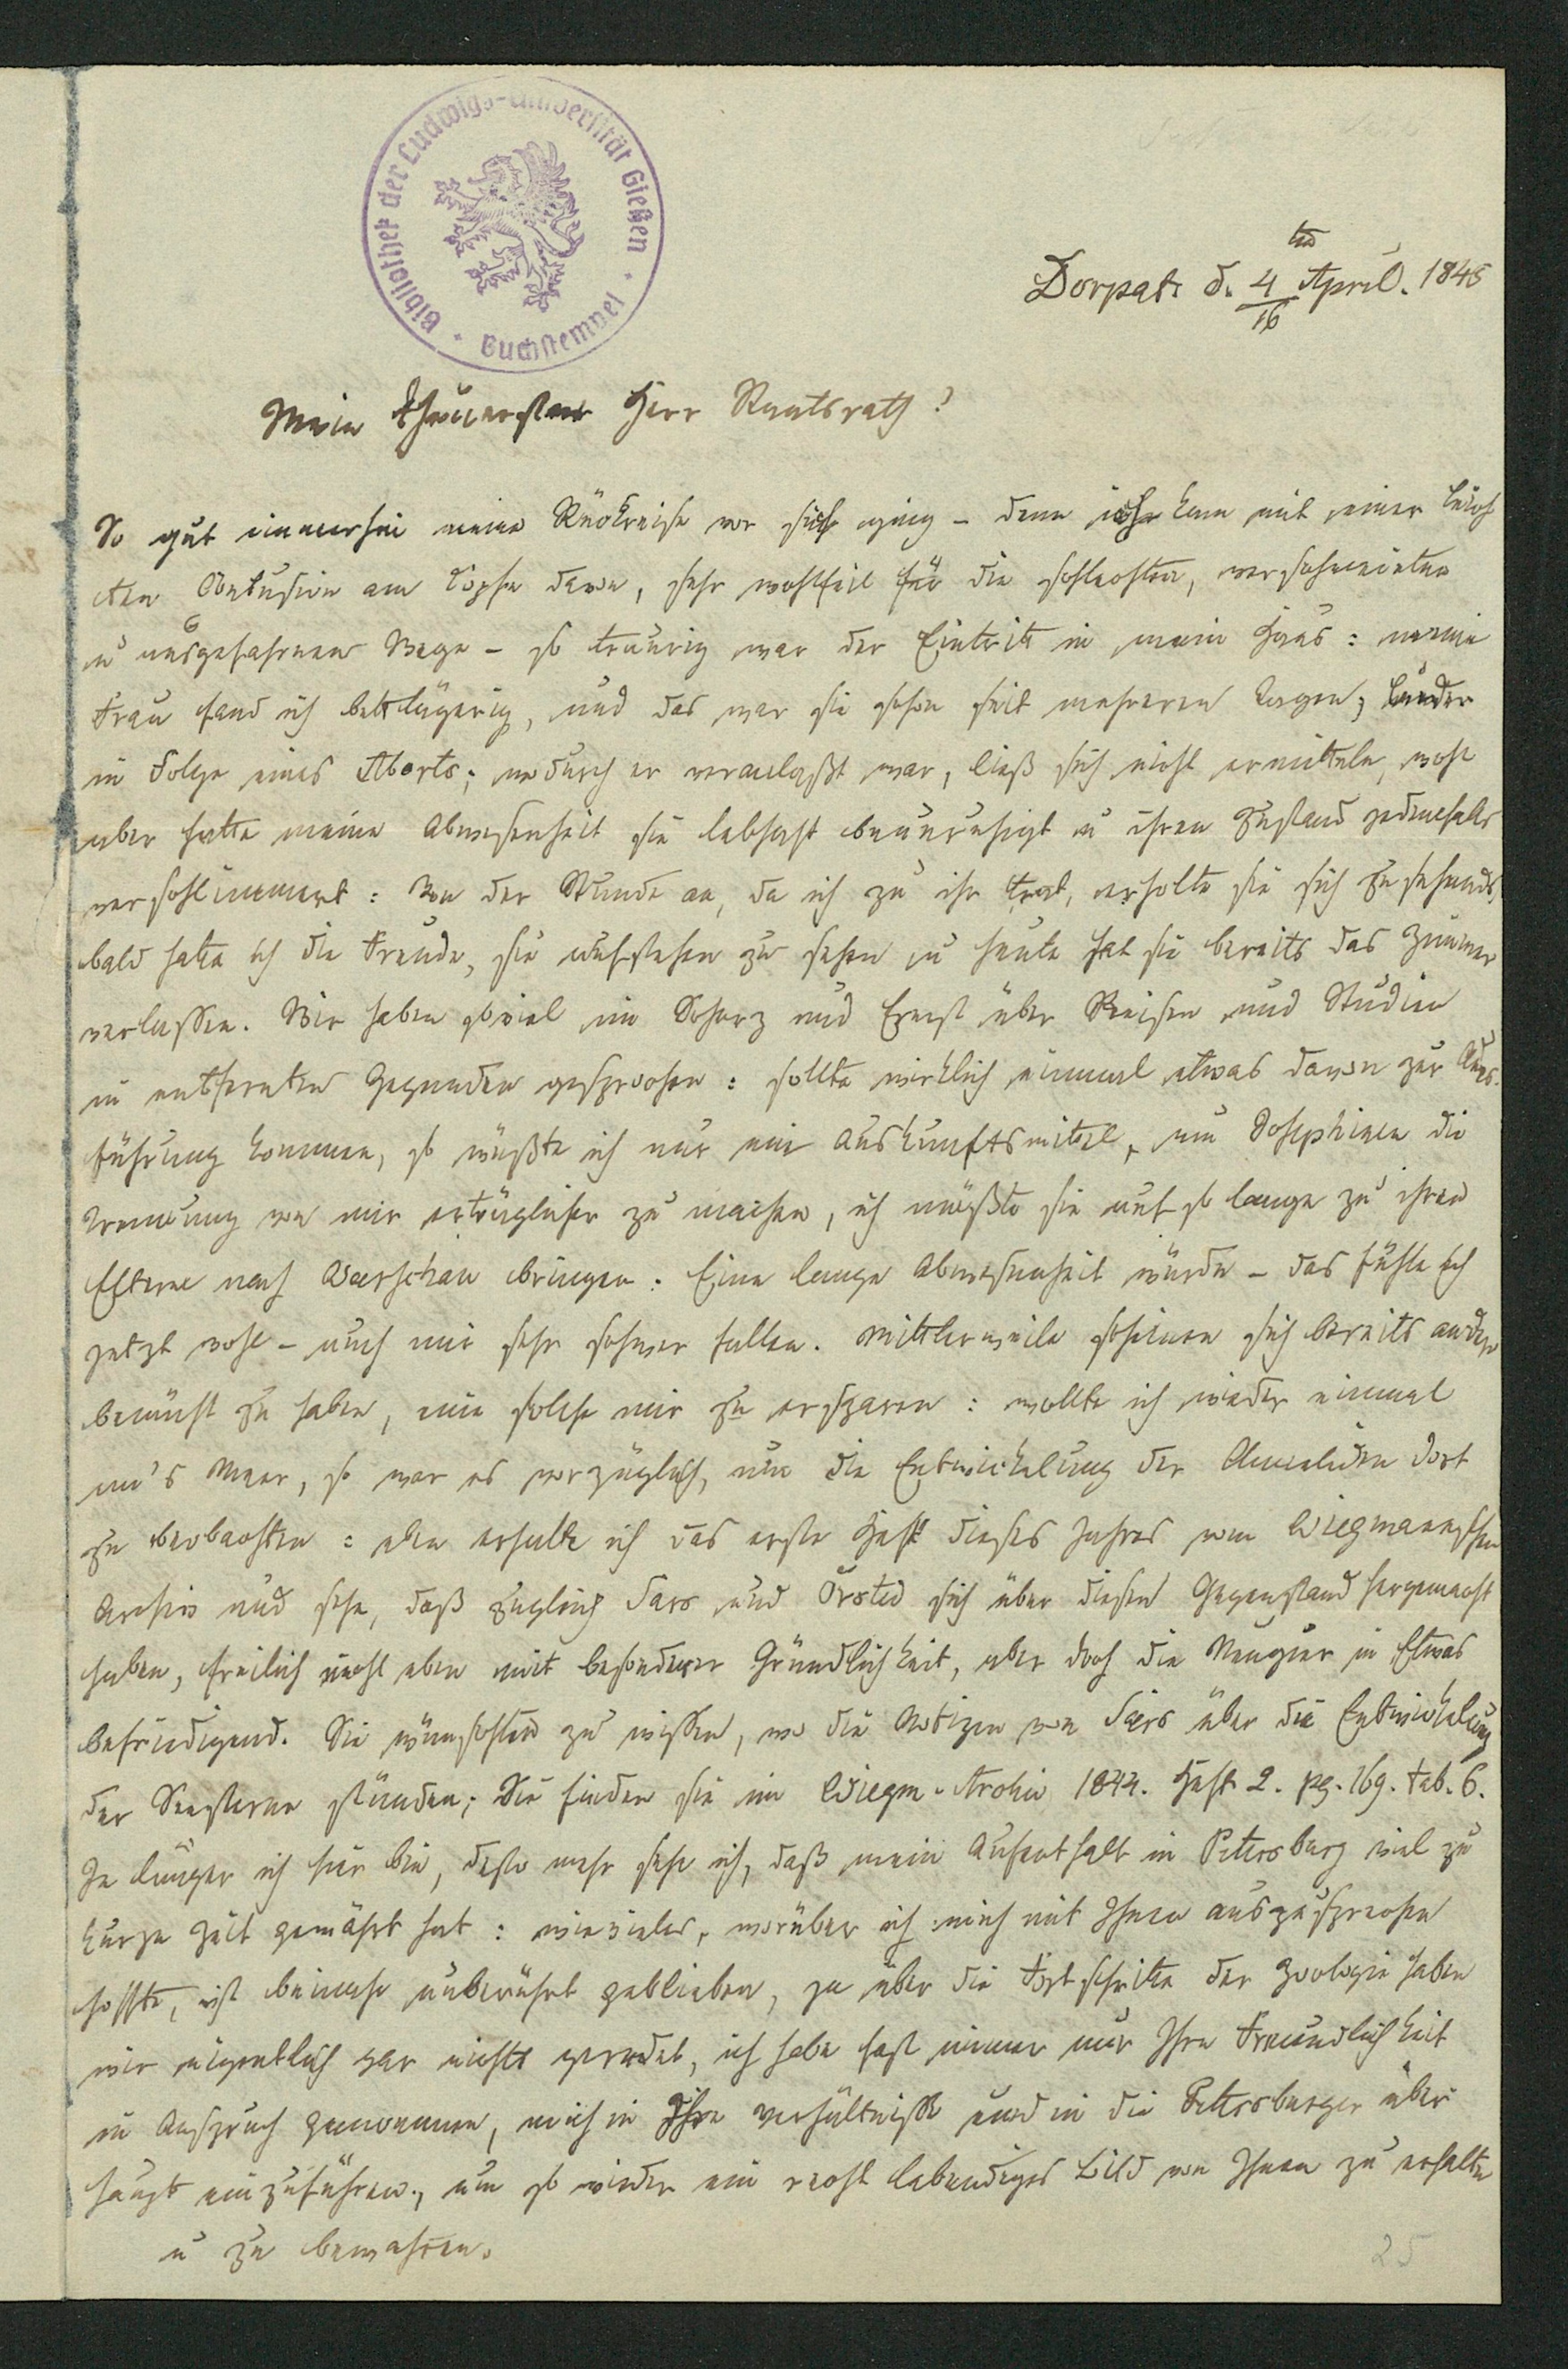 Bibliothek der Ludwigs-Universität Gießen
Buchstempel
Dorpat d. 4/16 ten April. 1845
Mein theuerster Herr Staatsrath!
So gut immerhin meine Rückreise vor sich ging – denn ich kam mit einer leich
ten Contusion am Kopfe davon, sehr wohlfeil für die schlechten, verschneieten
u ausgefahrenen Wege – so traurig war der Eintritt in mein Haus: meine
Frau fand ich bettlägerig, und das war sie schon seit mehreren Tagen, leider
in Folge eines Aborts; wodurch er veranlaßt war, ließ sich nicht ermitteln, wohl
aber hatte meine Abwesenheit sie lebhaft beunruhigt u ihren Zustand jedenfalls
verschlimmert: Von der Stunde an, da ich zu ihr trat, erholte sie sich zusehends,
bald hatte ich die Freude, sie aufstehen zu sehen u heute hat sie bereits das Zimmer
verlassen. Wir haben soviel im Scherz und Ernst über Reisen und Studien
in entfernten Gegenden gesprochen: sollte wirklich einmal etwas davon zur Aus-
führung kommen, so wüßte ich nur ein Auskunftsmittel, um Josephinen die
Trennung von mir erträglicher zu machen, ich müßte sie auf so lange zu ihren
Eltern nach Warschau bringen. Eine lange Abwesenheit würde – das fühle ich
jetzt wohl – auch mir sehr schwer fallen. Mittlerweile scheinen sich bereits andre
bemüht zu haben, eine solche mir zu ersparen: wollte ich wieder einmal
an's Meer, so war es vorzüglich, um die Entwickelung der Anneliden dort
zu beobachten: eben erhalte ich das erste Heft dieses Jahres vom Wiegmannschen
Archiv und sehe, daß zugleich Sars und Örsted sich über diesen Gegenstand hergemacht
haben, freilich nicht eben mit besonderer Gründlichkeit, aber doch die Neugier in Etwas
befriedigend. Sie wünschten zu wissen, wo die Notizen von Sars über die Entwickelung
der Seesterne stünden; Sie finden sie im Wiegm. Archiv 1844. Heft 2. pg. 169. tab. 6.
Je länger ich hier bin, desto mehr sehe ich, daß mein Aufenthalt in Petersburg viel zu
kurze Zeit gewährt hat: wievieles, worüber ich mich mit Ihnen auszusprechen
hoffte, ist beinahe unberührt geblieben, ja über die Fortschritte der Zoologie haben
wir eigentlich gar nichts geredet, ich habe fast immer nur Ihre Freundlichkeit
in Anspruch genommen, mich in Ihre Verhältnisse und in die Petersburger über
haupt einzuführen, um so wieder ein recht lebendiges Bild von Ihnen zu erhalten
u zu bewahren.
25